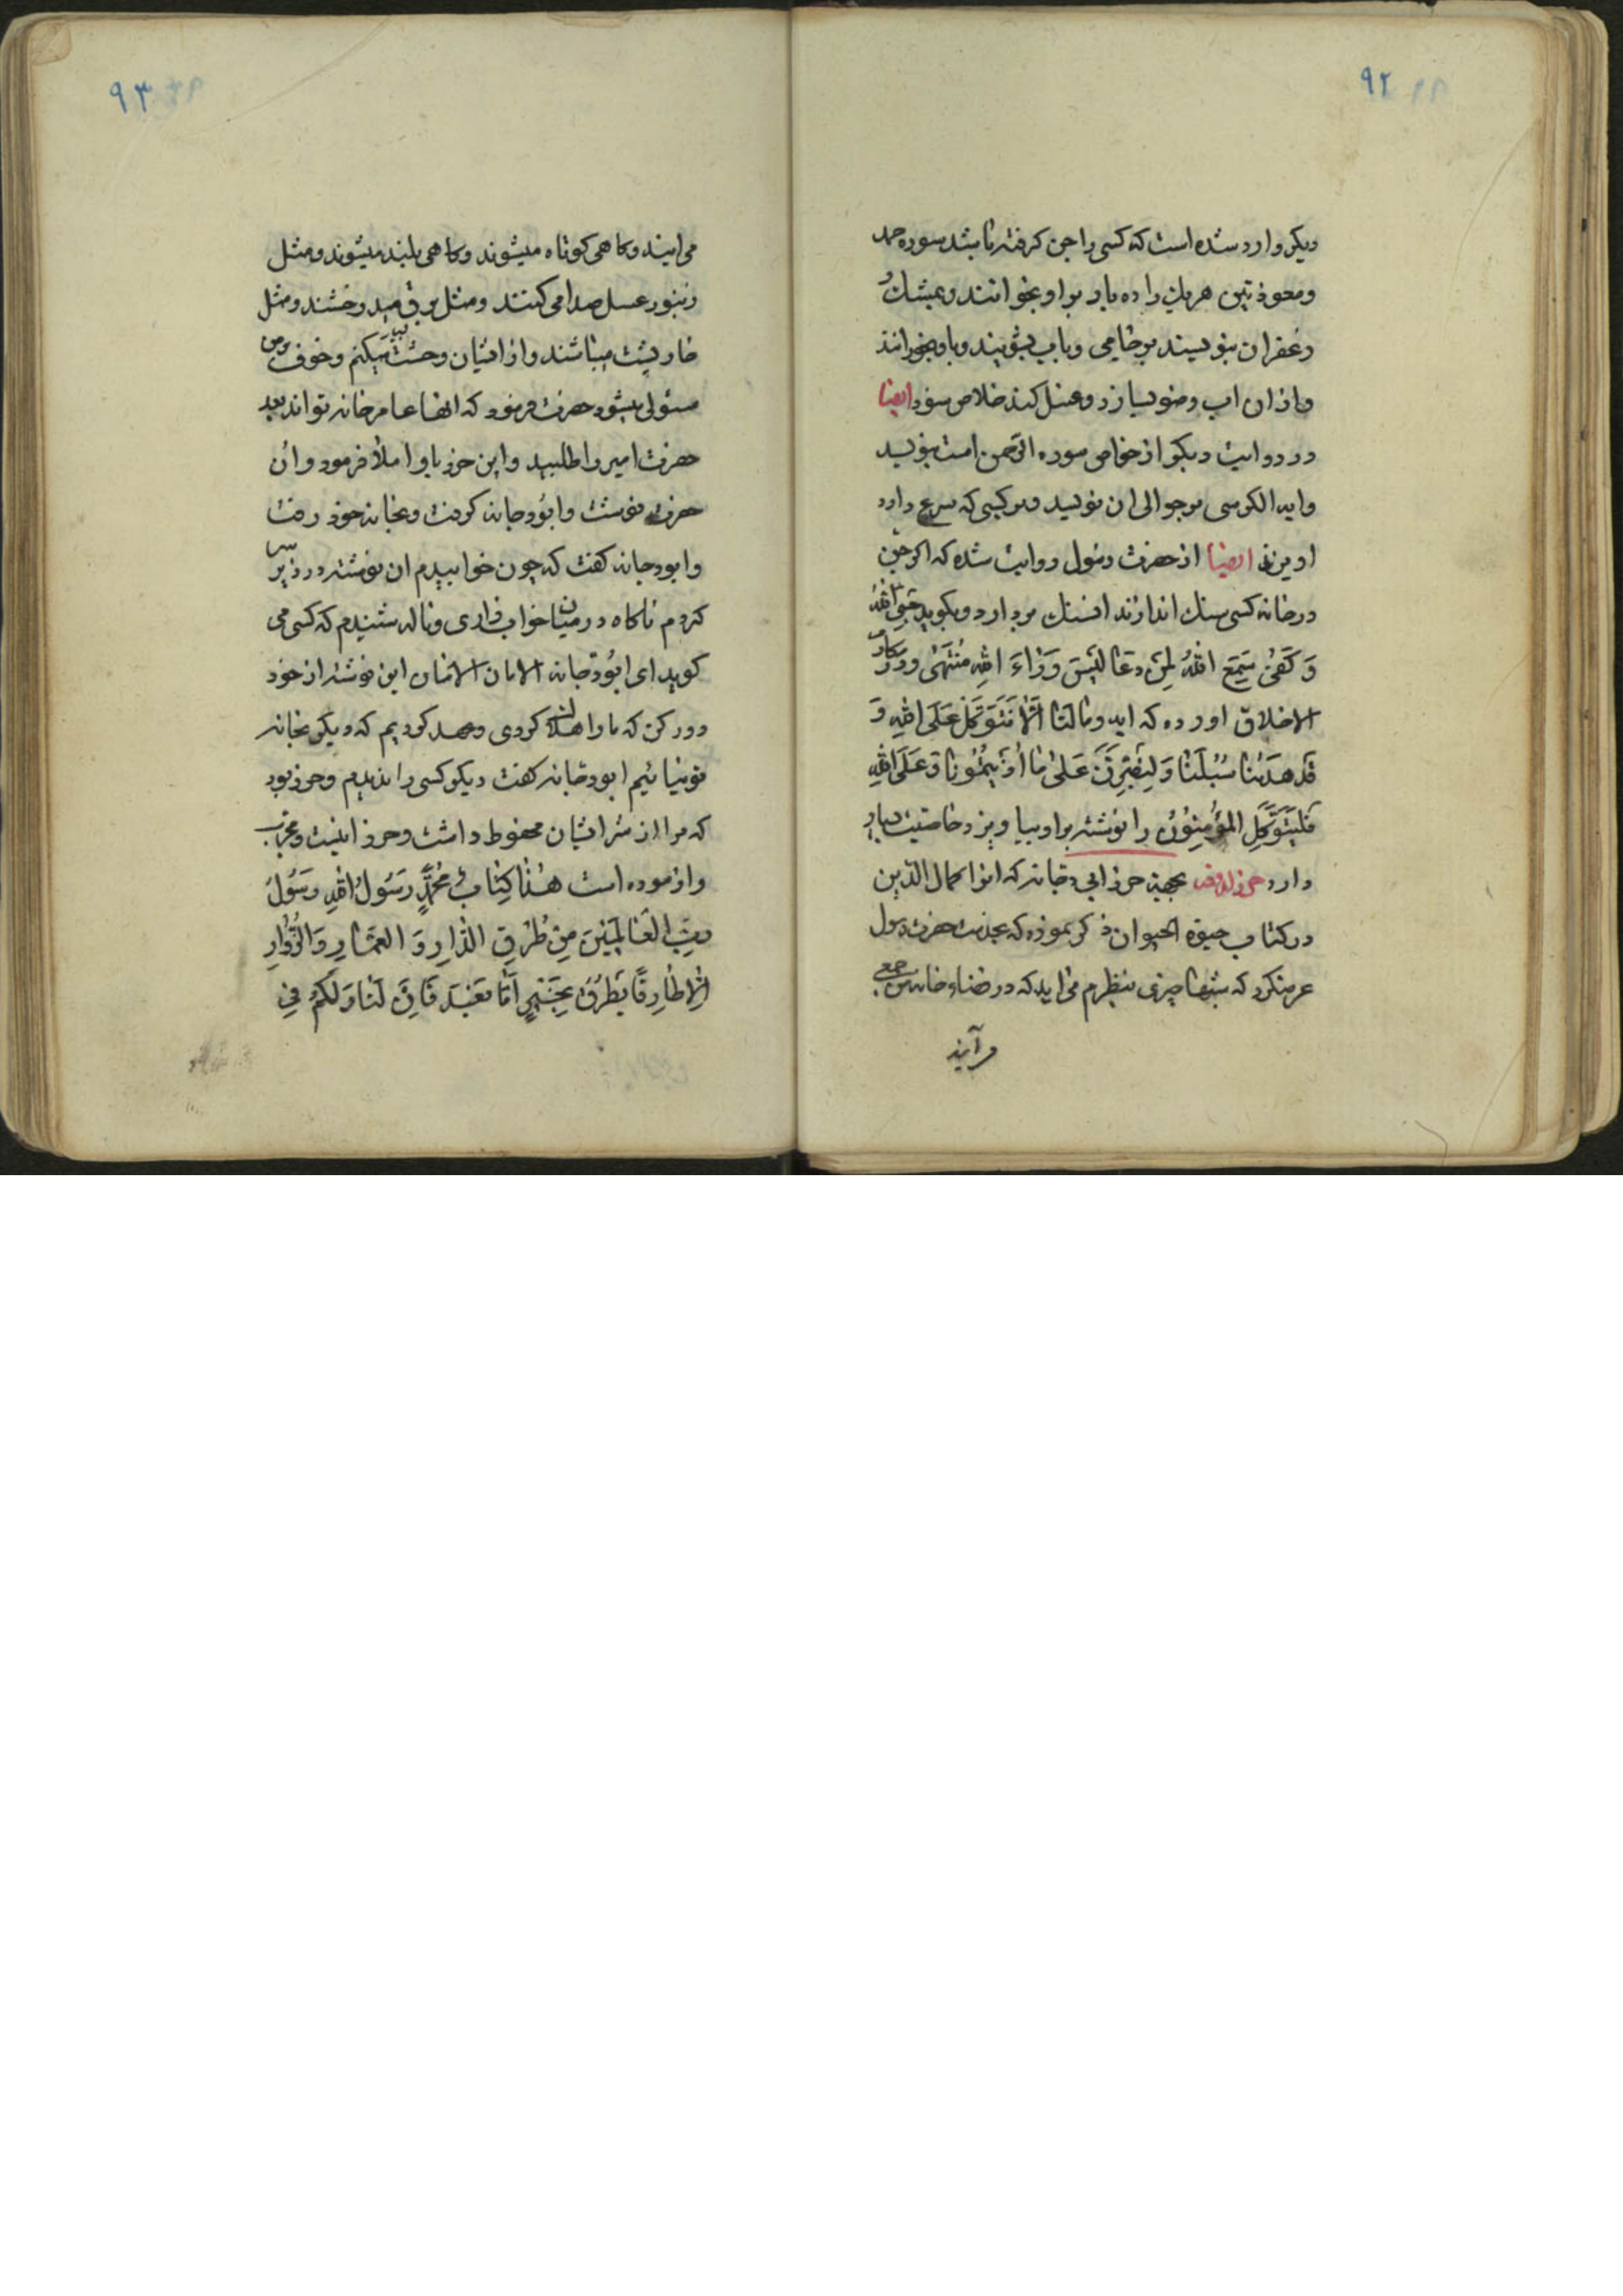 ۹۲
دیکر وارد شده است که کسی را جن کرفته باشد سوره حمد
ومعوذتین هر یک را ده بار براو بخوانند و بمشک و
زعفران بنویسند بر جامی و باب بشویند و باو بخورانند
واز ان اب وضو بسازد و غسل کند خلاص شود ایضا
در روایت دیکر از خواص سوره الرحمن است بنویسد
وایه الکرسی بر حوالی ان نویسد و بر کسی که صرع دارد
اویزند ایضا از حضرت رسول روایت شده که اکر جن
در خانه کسی سنک اندازند انسنک بردارد و بکوید حسبی الله
وَ کَفیٰ سَمِعَ اللهُ لِمَن دَعا لَیسَ وَرٰاءَ اللهِ مُنتَهیٰ ودر مکارم
الاخلاق اورده که ایه ومٰا لَنٰا اَلّٰا نَتَوَکَّلَ عَلَی اللهِ وَ
قَد هَدٰینٰا سُبُلَنٰا وَ لَنَصبِرَنَّ عَلیٰ مٰا اٰذَیتُمُونٰا وَ عَلَی اللهِ
فَلیَتَوَکَّلِ المُؤمِنُونَ را نوشته براو بیاویزد خاصیت بسیار
دارد بجهة حرز ابی دجانه که انرا کمال الدین
در کتاب حیوة الحیوان ذکر نموده که بخدمت حضرت رسول
عرضکرد که شبها چیزی بنظرم می اید که در فضاء خانه من جمعی
می آیند
۹۳
می ایند و کاهی کوتاه میشوند و کاهی بلند میشوند و مثل
زنبور عسل صدا می کنند و مثل برق میدرخشند و مثل
خارپشت میباشند و از ایشان وحشت میکنم و خوف بر من
مستولی میشود حضرت فرمود که انها عامر خانه تواند بعد
حضرت امیر را طلبید و این حرز باو املا فرمود و ان
حضرت نوشت و ابودجانه کرفت و بخانه خود رفت
و ابودجانه کفت که چون خوابیدم ان نوشته در زیر سر
کردم ناکاه در میان خواب فزاری و ناله شنیدم که کسی می
کوید ای ابودجانه الامان الامان این نوشته از خود
دور کن که ما را هلاک کردی و عهد کردیم که دیکر بخانه
تو نیائیم ابودجانه کفت دیکر کسی را ندیدم و حرز بود
که مرا از شر ایشان محفوظ داشت و حرز اینست و مجرب
و ازموده است هٰذٰا کِتٰابٌ مُحَمَّدٍ رَسُولُ اللهِ رَسُولُ
رَبِّ العٰالَمینَ مِن طُرُقِ الدّٰارِ وَ العُمّٰارِ وَ الزُّوّٰارِ
اِلّٰا طٰارِقًا یَطرُقُ بِخَیرٍ اَمّٰا بَعدَ فَاِنَّ لَنٰا وَ لَکُم فِی